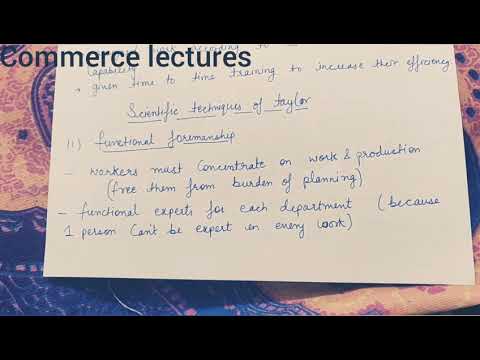 Commerce lectures
work according to
capability
→ given time to time training to increase their efficiency.
Scientific techniques of taylor
11) functional foremanship
- workers must concentrate on work & production
(free them from burden of planning)
- functional experts for each department (because
1 person can't be expert in every work)